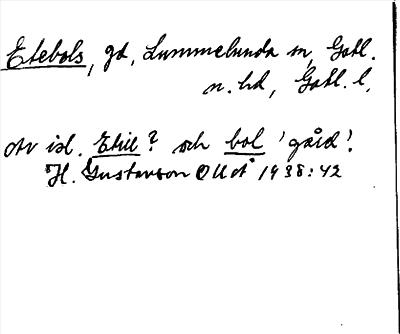 Etebols, gd, Lummelunda sn, Gotl.
n. hd, Gotl. l.
Av isl. Etill? och bol 'gård'.
H. Gustavson OUÅ 1938:42